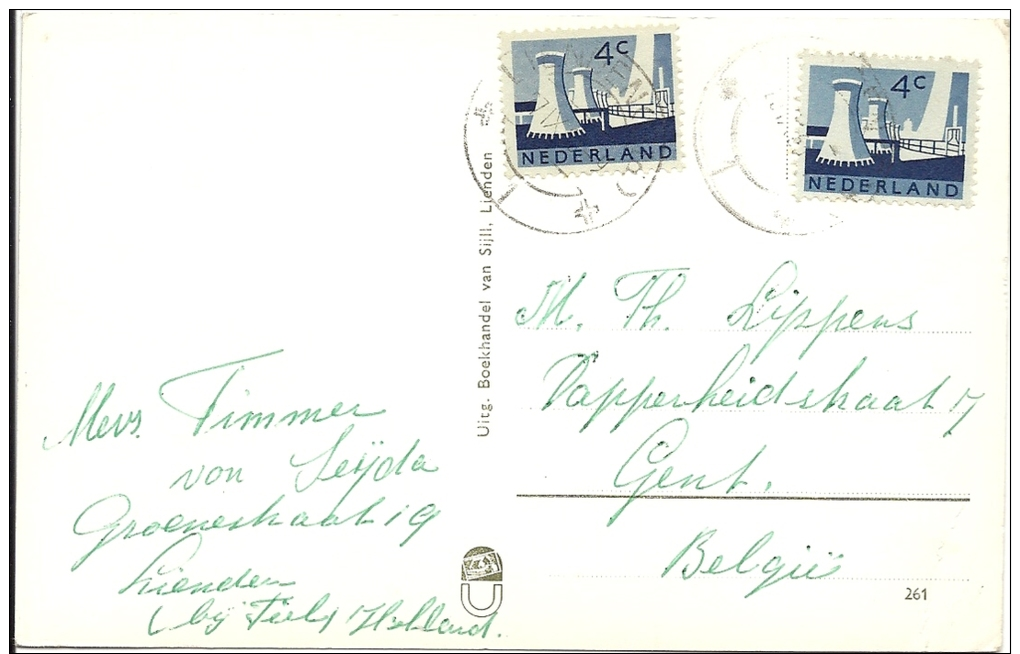 4c
NEDERLAND
4c
NEDERLAND
Uitg. Boekhandel van Sijll, Lienden
M. Th. Lippens
Dapperheidstraat 17
Gent.
België
261
Mevr. Timmer
von Seijda
Groenestraat 19
Lienden
(bij Tiel) Holland.